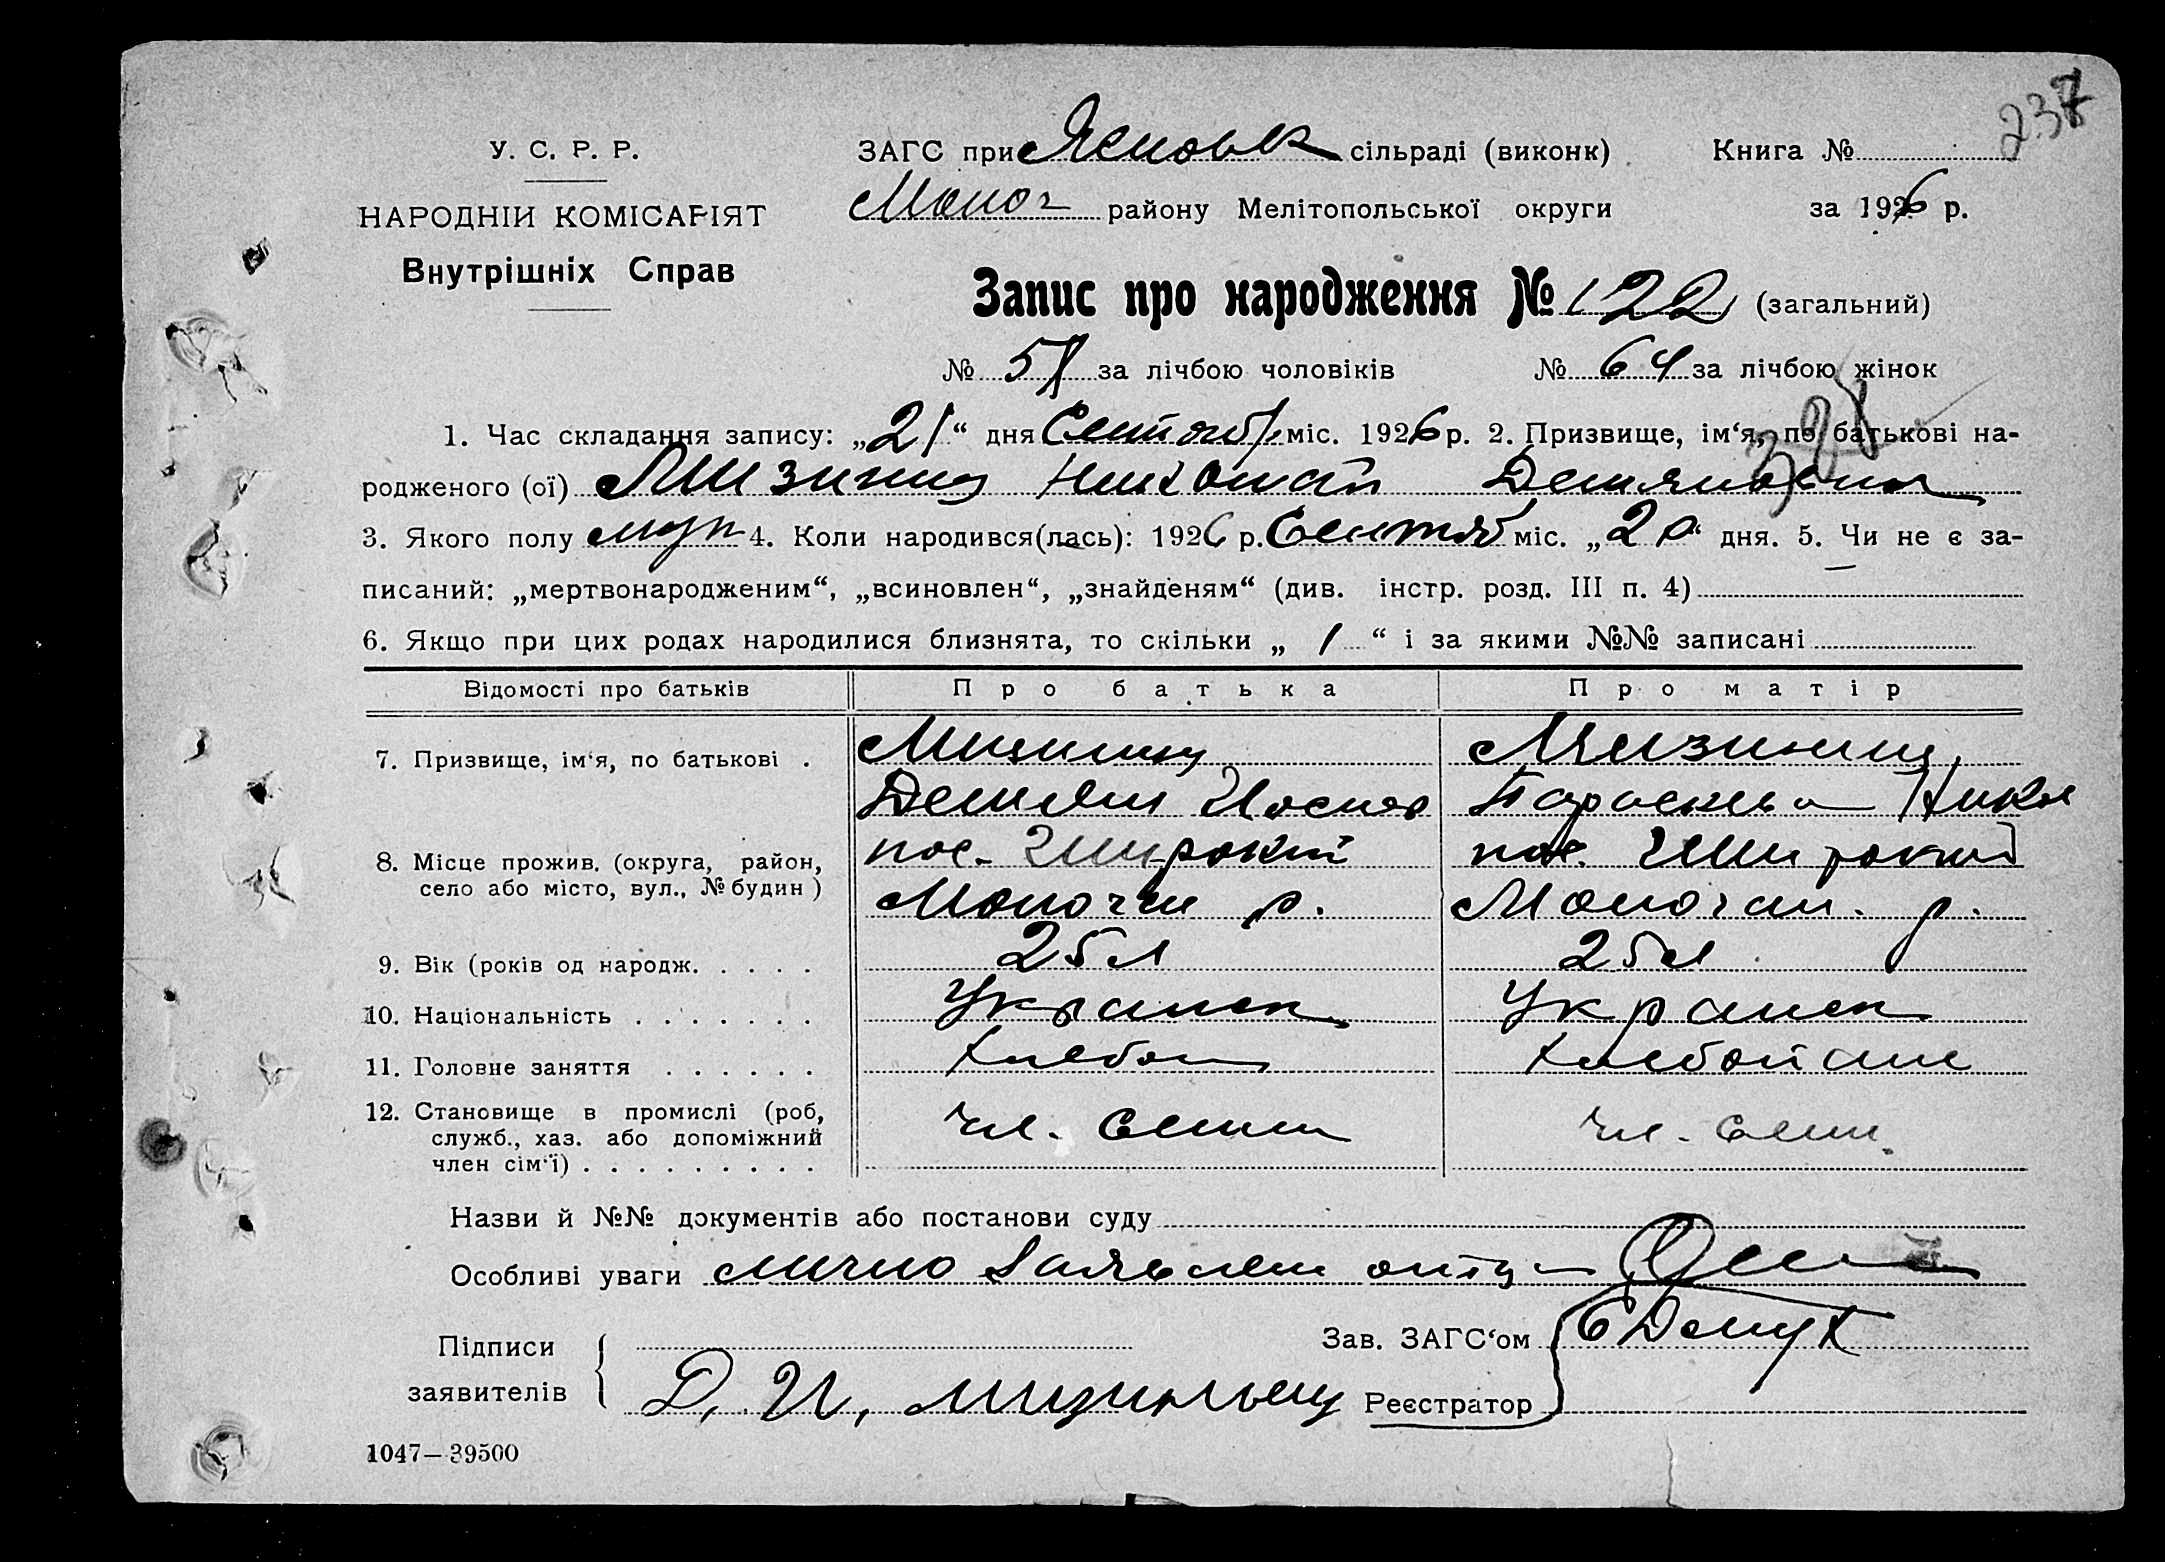 237
У. С. Р. Р.
НАРОДНІЙ КОМІСАРІЯТ
Внутрішніх Справ
ЗАГС при сільраді (виконк) Книга №
Молоч району Мелітопольської округи за 1926 р.
Запис про народження № 122 (загальний)
№ 58 за лічбою чоловіків № 64 за лічбою жінок
1. Час складання запису: „21“ дня Сентяб міс. 1926 р. 2. Призвище, ім‘я, по батькові на-
родженого (ої) Мизинец Николай Демянович
3. Якого полу муж 4. Коли народився(лась): 1926 р. Сентяб міс. „20“ дня. 5. Чи не є за-
писаний: „мертвонародженим“, „всиновлен“, „знайденям“ (див. інстр. розд. III п. 4)
6. Якщо при цих родах народилися близнята, то скільки „ 1 “ і за якими №№ записані
Відомості про батьків Про батька Про матір
7. Призвище, ім‘я, по батькові . Мизинец Мизинец
Демян Иосиф Параскева Никол
8. Місце прожив. (округа, район, пос. Широкий пос. Широкий
село або місто, вул., № будин) Молочан р. Молочан. р.
9. Вік (років од народж. . . . . 25 л 25 л
10. Національність . . . . . . . Украинен Украинен
11. Головне заняття . . . . . . Хлебоп Хлебопаш
12. Становище в промислі (роб, чл. семи чл. семи
служб., хаз. або допоміжний
член сім‘ї) . . . . . . . . .
Назви й №№ документів або постанови суду
Особливі уваги лично заявлен отцом
Підписи
заявителів Д. И. Мизинець
Зав. ЗАГС‘ом
Реєстратор
1047—39500